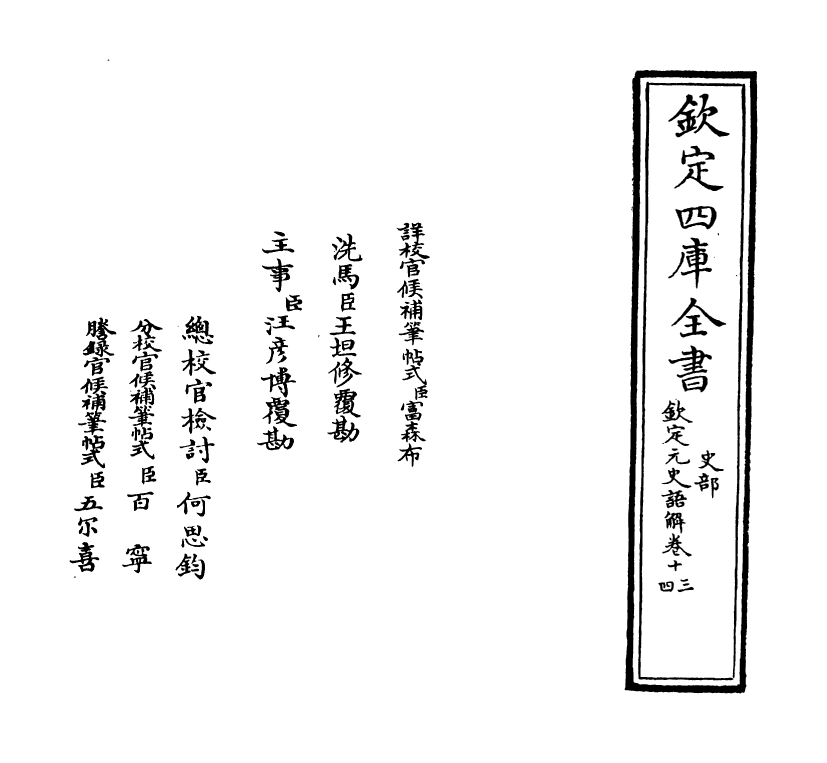 欽定四庫全書
史部
欽定元史語解卷十三四
詳校官候補筆帖式臣富森布
洗馬臣王坦修覆勘
主事臣汪彥博覆勘
總校官檢討臣何思鈞
分校官候補筆帖式臣百寧
謄錄官候補筆帖式臣五尔喜